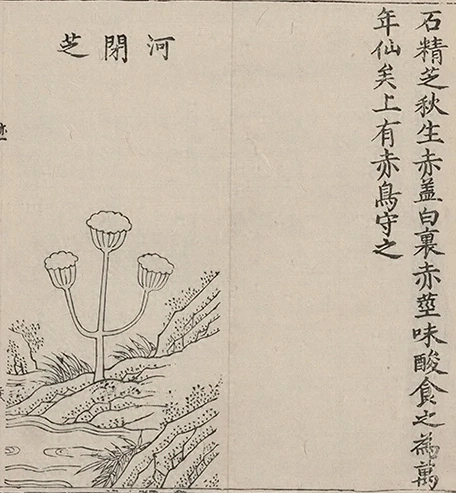 石精芝秋生赤盖白裏赤莖味酸食之為萬
年仙矣上有赤鳥守之
河閉芝